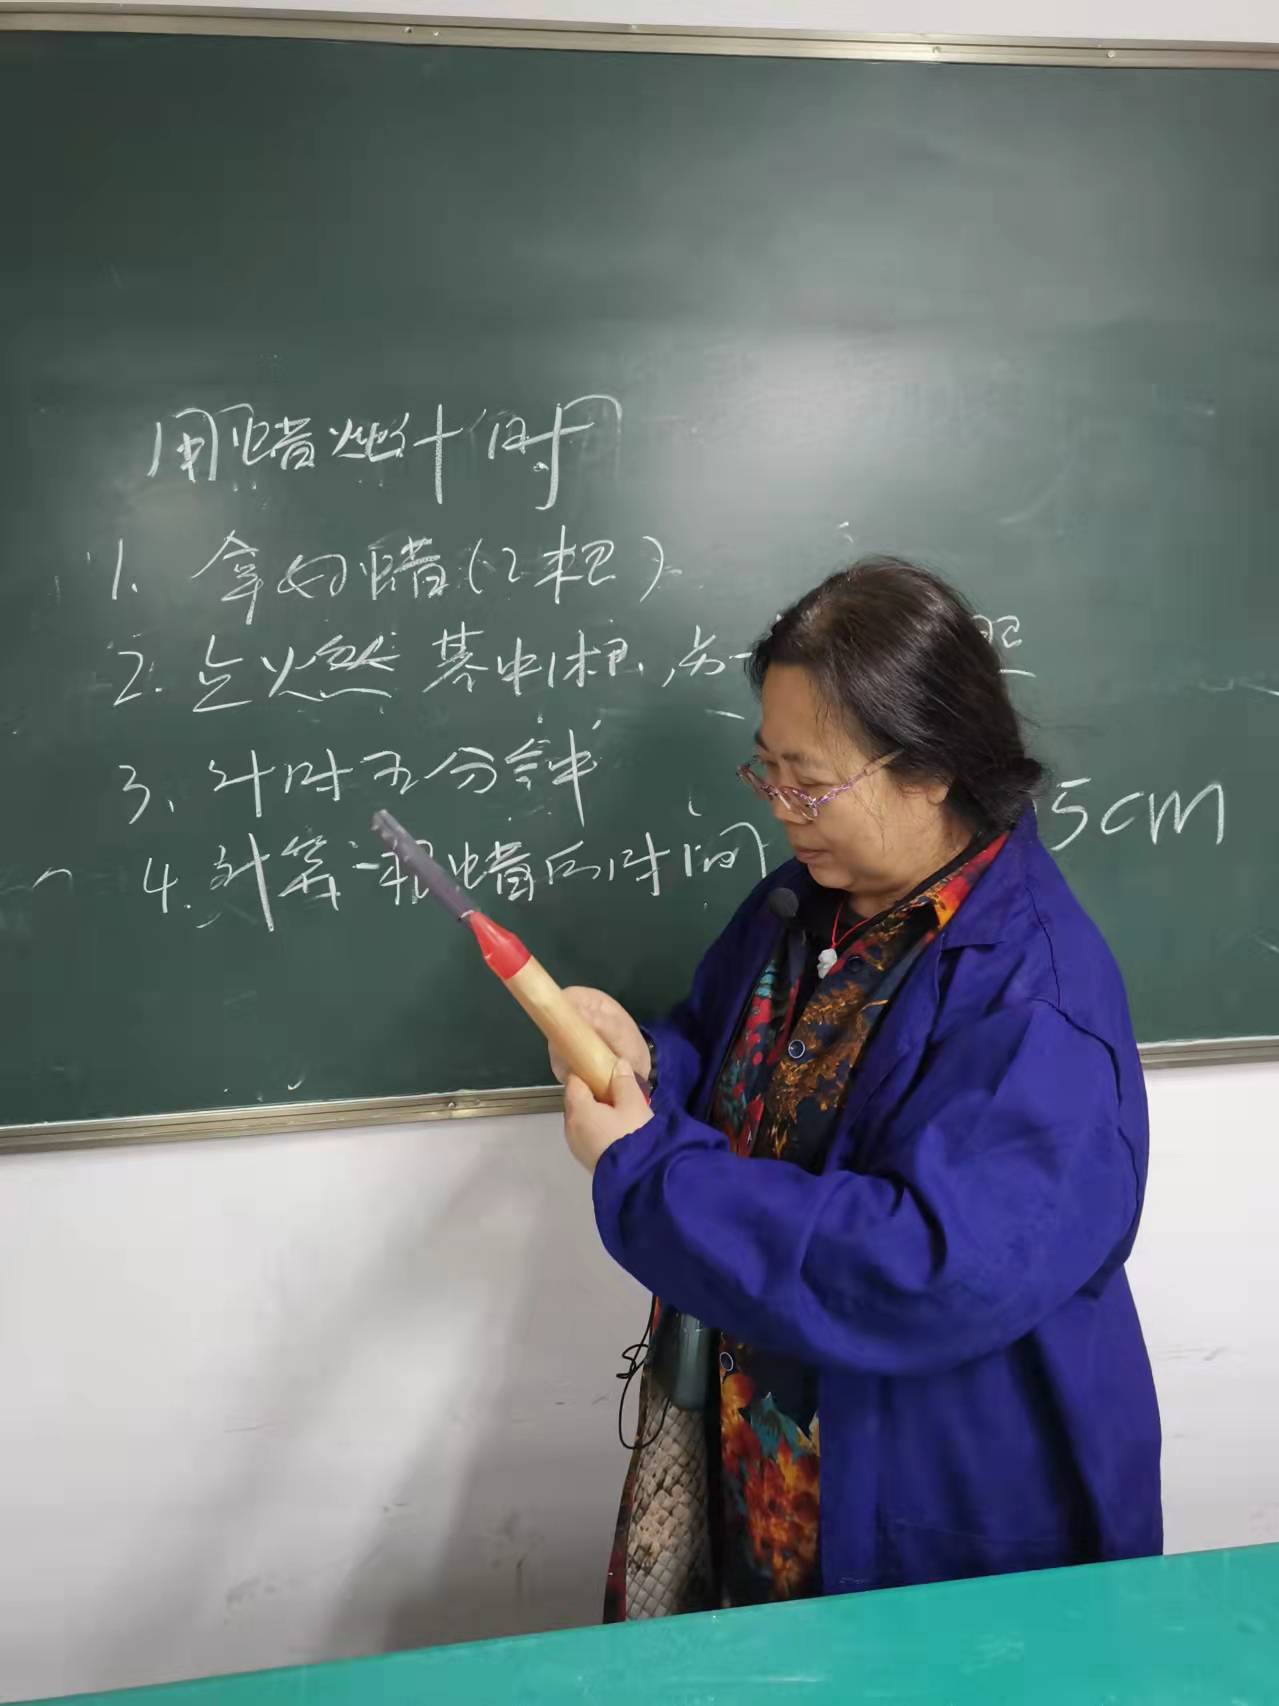 用蜡烛计时
1. 拿好蜡(2根)
2. 点燃其中1根,另一
3、计时五分钟
4. 计算一根蜡的时间 5cm